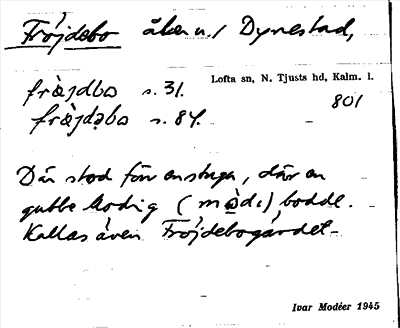 Fröjdebo åker u./ Dynestad,
Lofta sn, N. Tjusts hd, Kalm. l.
fræ̀jdbo s. 31.
801
fræ̀jdəbo s. 84.
Där stod förr en stuga, där en
gubbe Modig (mò̱dı) bodde.
Kallas även Fröjdebogärdet.
Ivar Modéer 1945